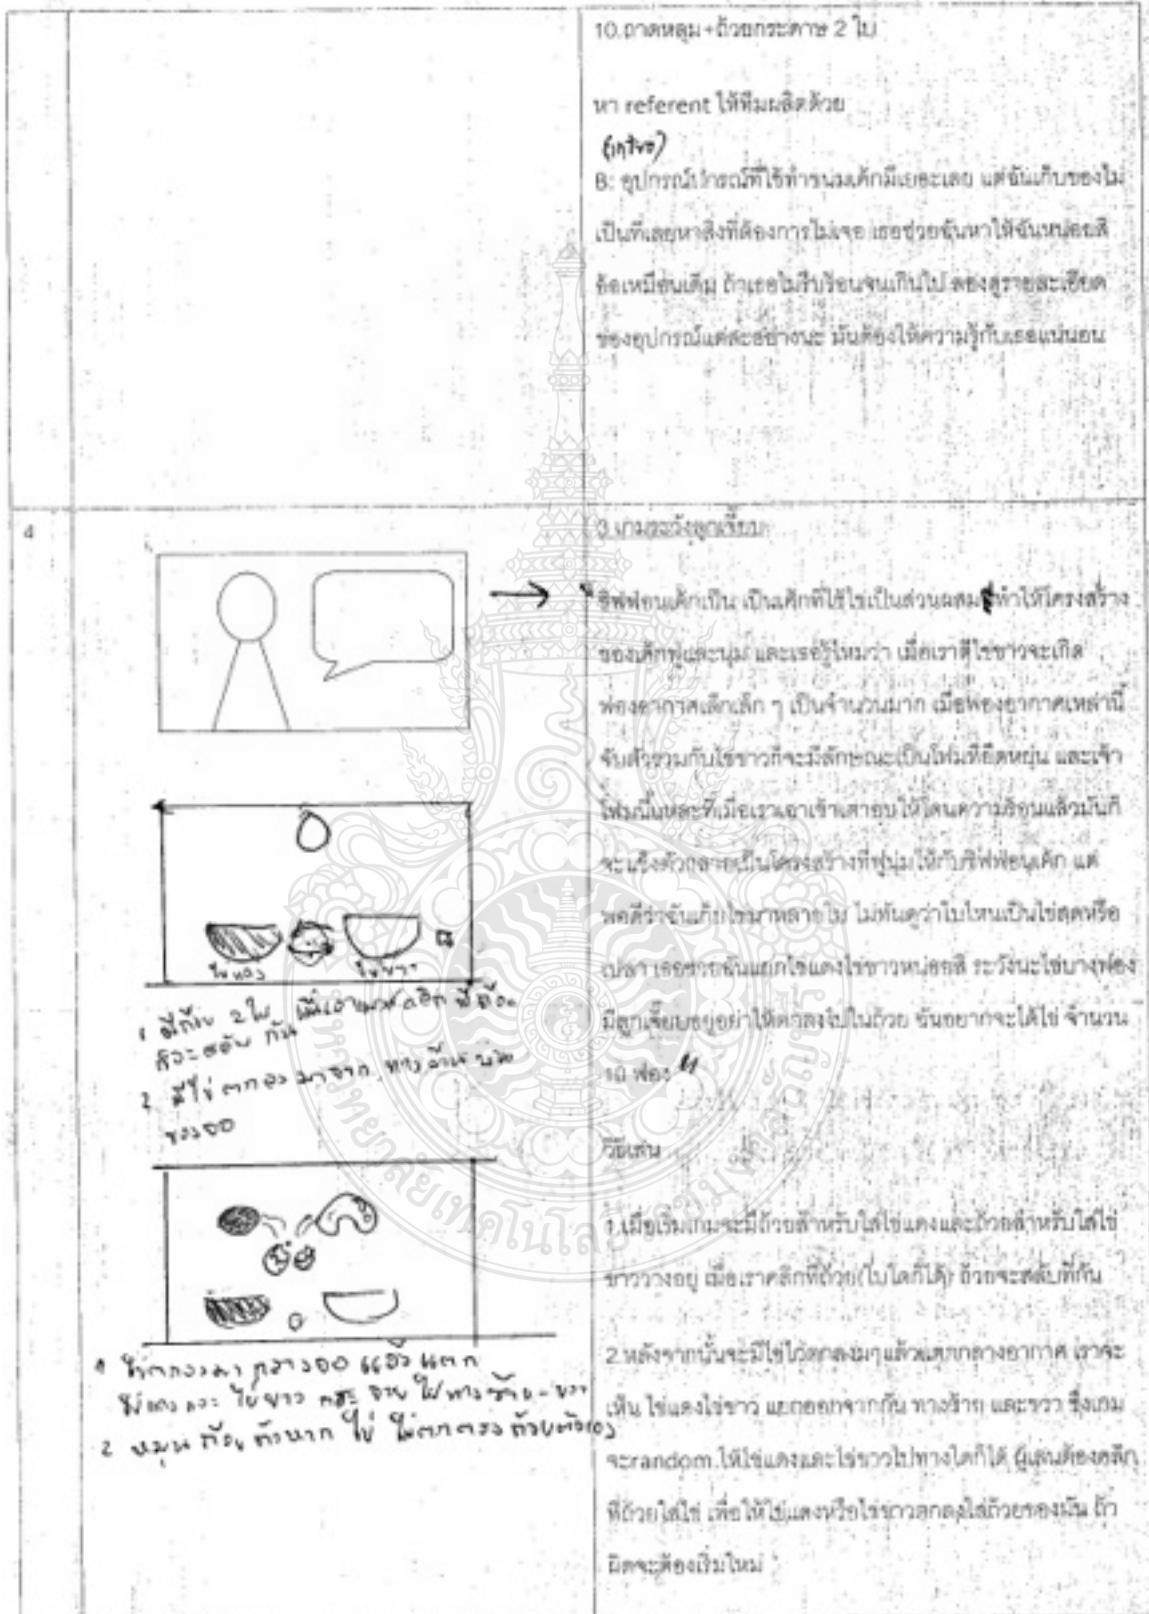 10.ถาดหลุม+ถ้วยกระดาษ 2 ใบ
หา referent ให้ทีมผลิตด้วย
(เกริ่น)
B: อุปกรณ์ปกรณ์ที่ใช้ทำขนมเค้กมีเยอะเลย แต่ฉันเก็บของไม่
เป็นที่เลยหาสิ่งที่ต้องการไม่เจอ เธอช่วยฉันหาให้ฉันหน่อยสิ
อ้อเหมือนเดิม ถ้าเธอไม่รีบร้อนจนเกินไป ลองดูรายละเอียด
ของอุปกรณ์แต่ละอย่างนะ มันต้องให้ความรู้กับเธอแน่นอน
4
3.เกมระวังลูกเจี๊ยบ
ชิฟฟ่อนเค้กเป็น เป็นเค้กที่ใช้ไข่เป็นส่วนผสม ทำให้โครงสร้าง
ของเค้กฟูและนุ่ม และเธอรู้ไหมว่า เมื่อเราตีไข่ขาวจะเกิด
ฟองอากาศเล็กเล็ก ๆ เป็นจำนวนมาก เมื่อฟองอากาศเหล่านี้
จับตัวรวมกับไข่ขาวก็จะมีลักษณะเป็นโฟมที่ยืดหยุ่น และเจ้า
โฟมนี้นหละที่เมื่อเราเอาเข้าเตาอบให้โดนความร้อนแล้วมันก็
จะแข็งตัวกลายเป็นโครงสร้างที่ฟูนุ่มให้กับชิฟฟ่อนเค้ก แต่
พอดีว่าฉันเก็บไข่มาหลายใบ ไม่ทันดูว่าใบไหนเป็นไข่สดหรือ
เปล่า เธอช่วยฉันแยกไข่แดงไข่ขาวหน่อยสิ ระวังนะไข่บางฟอง
มีลูกเจี๊ยบอยู่อย่าให้ตกลงไปในถ้วย ฉันอยากจะได้ไข่ จำนวน
10 ฟอง
ไข่แดง ไข่ขาว
1 มีถ้วย 2 ใบ เมื่อเอาเมาส์คลิก ที่ถ้วย
จะสลับ กัน
2. มีไข่ ตกลงมาจาก ทางด้านบน
ของจอ
วิธีเล่น
1.เมื่อเริ่มเกมจะมีถ้วยสำหรับใส่ไข่แดงและถ้วยสำหรับใส่ไข่
ขาววางอยู่ เมื่อเราคลิกที่ถ้วย(ใบใดก็ได้) ถ้วยจะสลับที่กัน
2.หลังจากนั้นจะมีไข่ไก่ตกลงมาแล้วแตกกลางอากาศ เราจะ
เห็น ไข่แดงไข่ขาว แยกออกจากกัน ทางซ้าย และขวา ซึ่งเกม
จะrandom ให้ไข่แดงและไข่ขาวไปทางใดก็ได้ ผู้เล่นต้องคลิก
ที่ถ้วยใส่ไข่ เพื่อให้ไข่แดงหรือไข่ขาวตกลงใส่ถ้วยของมัน ถ้า
ผิดจะต้องเริ่มใหม่
1 ไข่ตกลงมา กลางจอ แล้วแตก
ไข่แดง และ ไข่ขาว กระจาย ไปทางซ้าย-ขวา
2 หมุน ถ้วย ถ้าหาก ไข่ ไม่ตกตรง ถ้วยตัวเอง